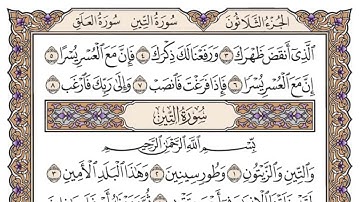 الجزء الثلاثون سورة التين سورة العلق
الَّذِي أَنقَضَ ظَهْرَكَ ٣ وَرَفَعْنَا لَكَ ذِكْرَكَ ٤ فَإِنَّ مَعَ الْعُسْرِ يُسْرًا ٥
إِنَّ مَعَ الْعُسْرِ يُسْرًا ٦ فَإِذَا فَرَغْتَ فَانصَبْ ٧ وَإِلَىٰ رَبِّكَ فَارْغَب ٨
سُورَةُ التِّينِ
بِسْمِ اللَّهِ الرَّحْمَٰنِ الرَّحِيمِ
وَالتِّينِ وَالزَّيْتُونِ ١ وَطُورِ سِينِينَ ٢ وَهَٰذَا الْبَلَدِ الْأَمِينِ ٣